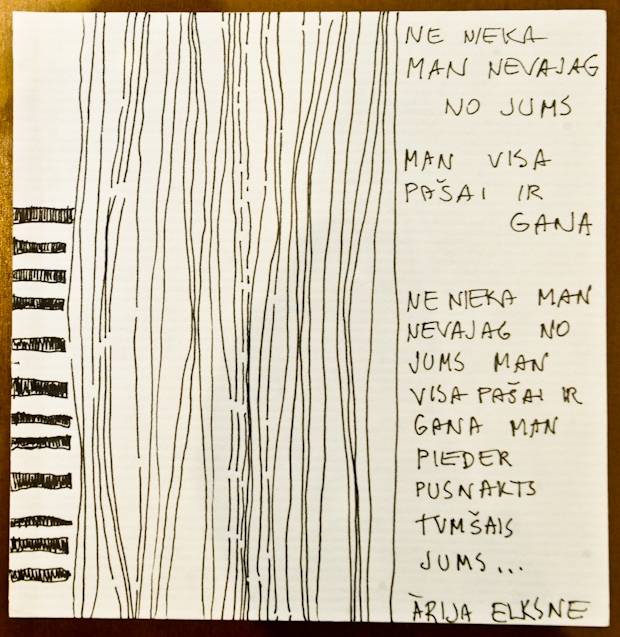 NE NIEKA
MAN NEVAJAG
NO JUMS
MAN VISA
PAŠAI IR
GANA
NE NIEKA MAN
NEVAJAG NO
JUMS MAN
VISA PAŠAI IR
GANA MAN
PIEDER
PUSNAKTS
TUMŠAIS
JUMS...
ĀRIJA ELKSNE